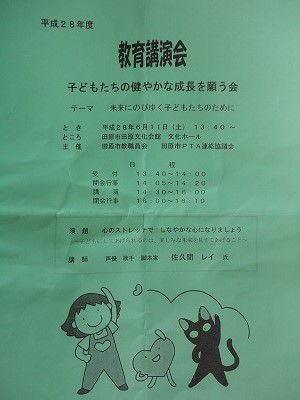 平成28年度
教育講演会
子どもたちの健やかな成長を願う会
テーマ 未来にのびゆく子どもたちのために
とき 平成28年6月11日(土) 13:40~
ところ 田原市田原文化会館 文化ホール
主催 田原市教職員会 田原市PTA連絡協議会
日程
受付 13:40~14:00
開会行事 14:05~14:20
講演 14:30~16:00
閉会行事 16:00~16:10
演題 心のストレッチで しなやかな心になりましょう
~子どもにしてあげられるのは、楽しみな未来を見せてあげること~
講師 声優 歌手 脚本家 佐久間 レイ 氏